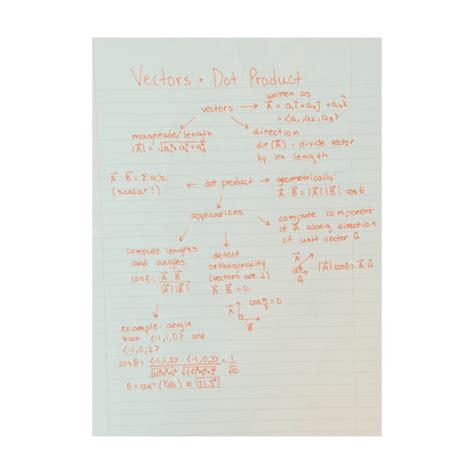 Vectors + Dot Product
vectors → written as
A = a₁î + a₂ĵ + a₃k̂
= ⟨a₁, a₂, a₃⟩
magnitude/length
|A| = √a₁² + a₂² + a₃²
direction
dir(A) - divide vector
by its length
A · B = Σ aᵢbᵢ
(scalar!)
← dot product →
geometrically:
A · B = |A||B| cosθ
applications
compute lengths
and angles
cosθ = A · B / |A||B|
detect
orthogonality
(vectors are ⊥)
A · B = 0
A
B
cos π/2 = 0
compute component
of A along direction
of unit vector û
A
û
|A| cosθ = A · û
example: angle
btwn ⟨-1,1,0⟩ and
⟨-1,0,2⟩
cosθ = ⟨-1,1,0⟩ · ⟨-1,0,2⟩ / = 1/√10
θ = cos⁻¹(1/√10) ≈ 71.5°